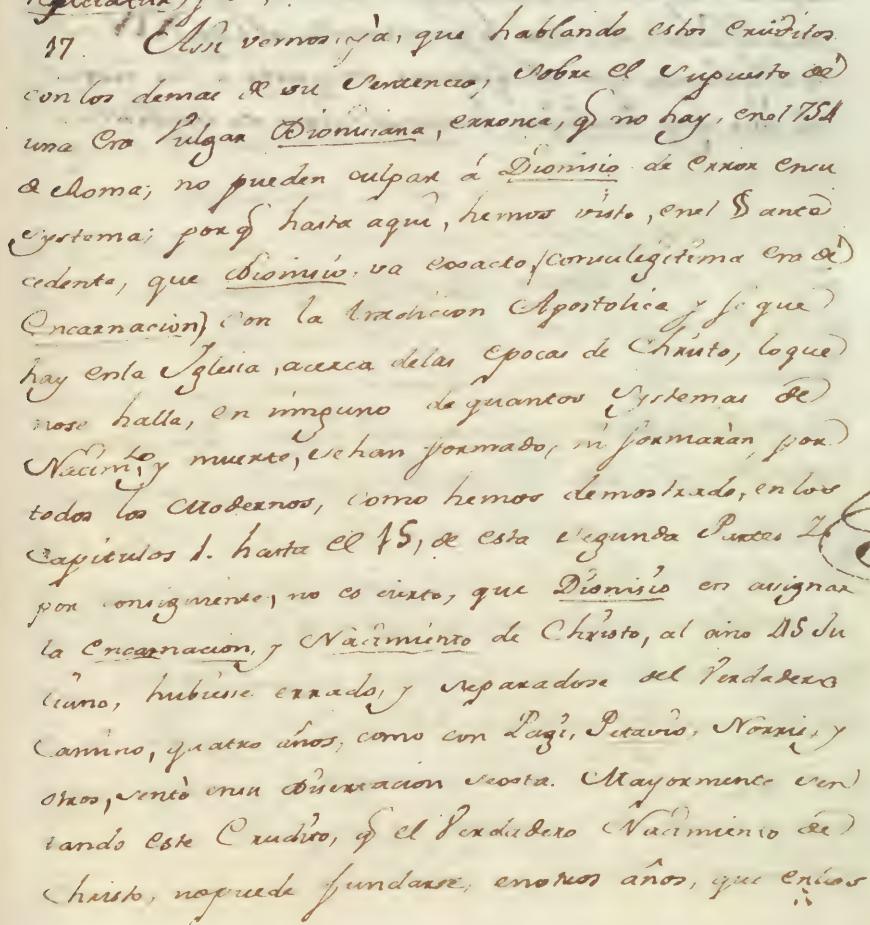 17. Assi vemos, yà, que hablando estos eruditos
con los demas de su Sentencia, sobre el supuesto de
una Era Vulgar Dionisiana, erronea, q̃ no hay, en el 754
de Roma; no pueden culpar á Dionisio de error en su
Systema; porq̃ hasta aqui, hemos visto, en el § ante
cedente, que Dionisio, va exacto, (con su legitima era de
Encarnacion) con la tradicion Apostolica y fé que
hay en la Yglesia, acerca de las epocas de Christo, lo que
no se halla, en ninguno de quantos Systemas de
Nacim.to y muerte, se han formado, ni formaràn, por
todos los Modernos, como hemos demostrado, en los
Capitulos 1. hasta el 15, de esta segunda Parte: Y
por consiguiente, no es cierto, que Dionisio en assignar
la Encarnacion, y Nacimiento de Christo, al año 45 Ju
liano, hubiesse errado, y separadose del Verdadero
Camino, quatro años, como con Pagi, Petavio, Norris, y
otros, sentò en su Disertacion sexta. Mayormente sen
tando este Erudito, q̃ el Verdadero Nacimiento de
Christo, no puede fundarse, en otros años, que en los